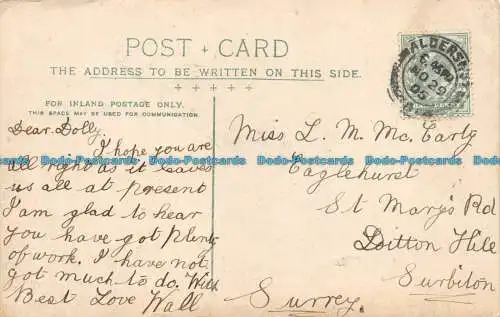 POST + CARD
THE ADDRESS TO BE WRITTEN ON THIS SIDE.
FOR INLAND POSTAGE ONLY.
THIS SPACE MAY BE USED FOR COMMUNICATION.
Dear Dolly.
I hope you are
all right as it leaves
us all at present
I am glad to hear
you have got plenty
of work. I have not
got much to do. With
Best Love Wall
Miss L. M. Mc. Carty
Eaglehurst
St Mary's Rd
Ditton Hill
Surbiton
Surrey.
ALDERSHOT
NO 29
05
Dodo-Postcards Dodo-Postcards Dodo-Postcards Dodo-Postcards